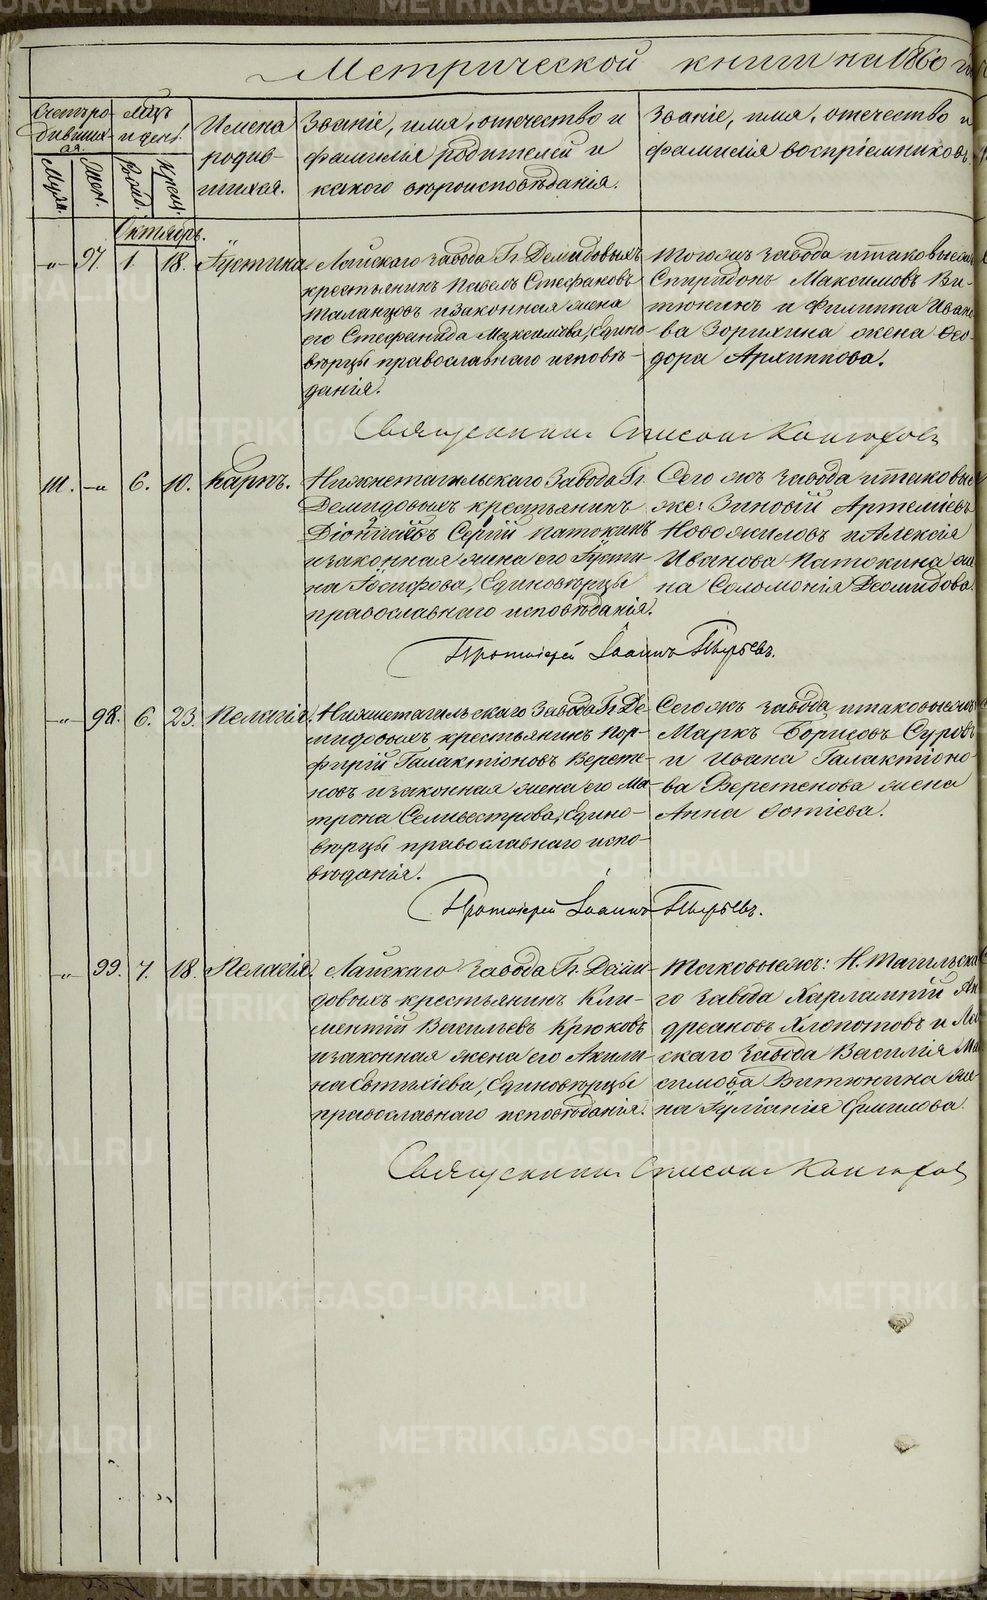 Метрической книги на 1860 го
Счетъ ро
дивших
ся.
Муж.
Жен.
Мѣсяцъ
и день.
Рожд.
Крещ.
Имена
родив-
шихся.
Званіе, имя, отечество и
фамилія родителей и
какого вѣроисповѣданія.
Званіе, имя, отечество и
фамилія воспріемниковъ.
Октябрь.
-„- 97. 1. 18. Іустина.
Лайскаго завода Гг. Демидовыхъ
крестьянинъ Павелъ Стефановъ
Таланцовъ и законная жена
его Стефанида Максимова, Едино-
вѣрцы православнаго исповѣ-
данія.
Тогожъ завода и таковыежъ
Спиридонъ Максимовъ Ви-
тюнинъ и Филиппа Ивано-
ва Зорихина жена Ѳео-
дора Архиппова.
Священникъ
111. -„- 6. 10. Карпъ.
Нижнетагильскаго Завода Гг.
Демидовыхъ крестьянинъ
Діонисій Сергіи Патокинъ
и законная жена его Іусти-
на Іосифова, Единовѣрцы
православнаго исповѣданія.
Сего жъ завода и таковые
же: Зиновій Артеміевъ
Новожиловъ и Алексія
Иванова Патокина же
на Соломонія Деомидова.
Протоіерей Іоаннъ Пырьевъ.
-„- 98. 6. 23. Пелагія.
Нижнетагильскаго Завода Гг. Де-
мидовыхъ крестьянинъ Пор-
фирій Галактіоновъ Верете-
новъ и законная жена его Ма-
трона Селивестрова, Едино-
вѣрцы православнаго испо-
вѣданія.
Сегожъ завода и таковыежъ
Маркъ Борисовъ Суровъ
и Ивана Галактіоно-
ва Веретенова жена
Анна Фотіева.
Протоіерей Іоаннъ Пырьевъ.
-„- 99. 7. 18. Пелагія.
Лайскаго завода Гг. Деми-
довыхъ крестьянинъ Кли-
ментій Васильевъ Крюковъ
и законная жена его Акили-
на Евтихіева, Единовѣрцы
православнаго исповѣданія.
Таковыежъ: Н. Тагильска
го завода Харлампій Ан
дреановъ Хлопотовъ и Лай
скаго завода Василія Мак
симова Витюнина же-
на Іуліанія Ермилова.
Священникъ
METRIKI.GASO-URAL.RU